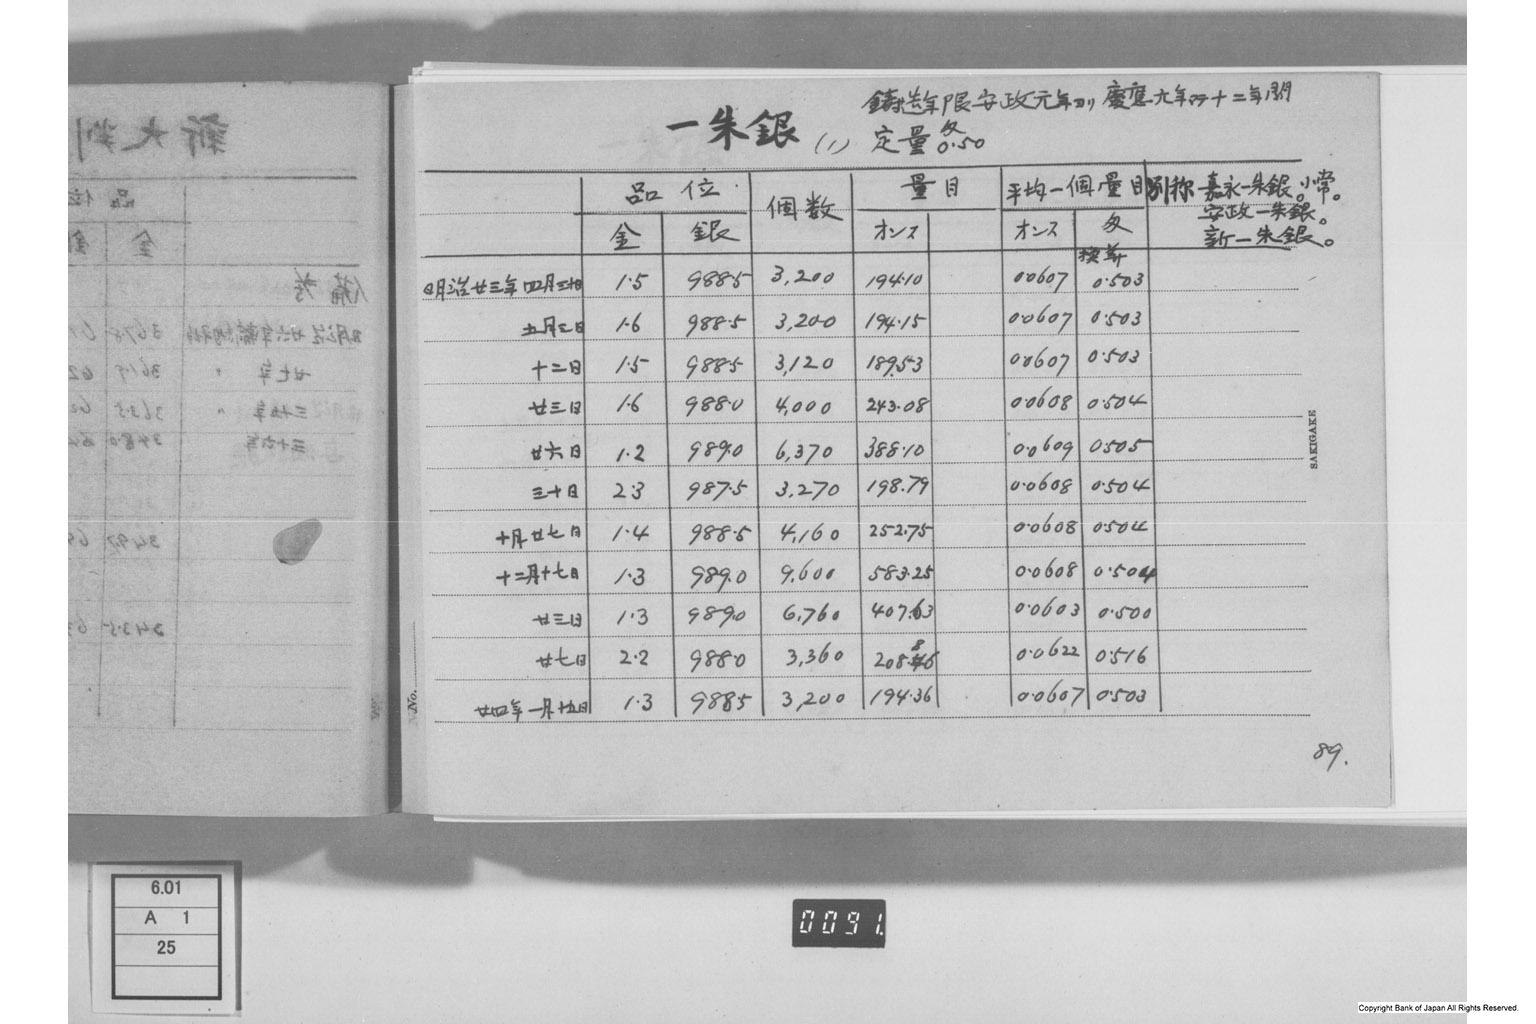 鋳造年限安政元年ヨリ慶應元年迠十二年間
一朱銀 (1) 定量 匁0.50
品位 個数 量目 平均一個量目 別称 嘉永一朱銀。小常。
安政一朱銀。
金 銀 オンス オンス 匁 新一朱銀。
換算
明治廿三年四月三十日 1.5 988.5 3,200 194.10 0.0607 0.503
五月三日 1.6 988.5 3,200 194.15 0.0607 0.503
十二日 1.5 988.5 3,120 189.53 0.0607 0.503
廿三日 1.6 988.0 4,000 243.08 0.0608 0.504
廿六日 1.2 989.0 6,370 388.10 0.0609 0.505
三十日 2.3 987.5 3,270 198.79 0.0608 0.504
十月廿七日 1.4 988.5 4,160 252.75 0.0608 0.504
十二月十七日 1.3 989.0 9,600 583.25 0.0608 0.504
廿三日 1.3 989.0 6,760 407.63 0.0603 0.500
廿七日 2.2 988.0 3,360 208.86 0.0622 0.516
廿四年一月十五日 1.3 988.5 3,200 194.36 0.0607 0.503
No.
SAKIGAKE
89.
6.01
A 1
25
0091.
Copyright Bank of Japan All Rights Reserved.